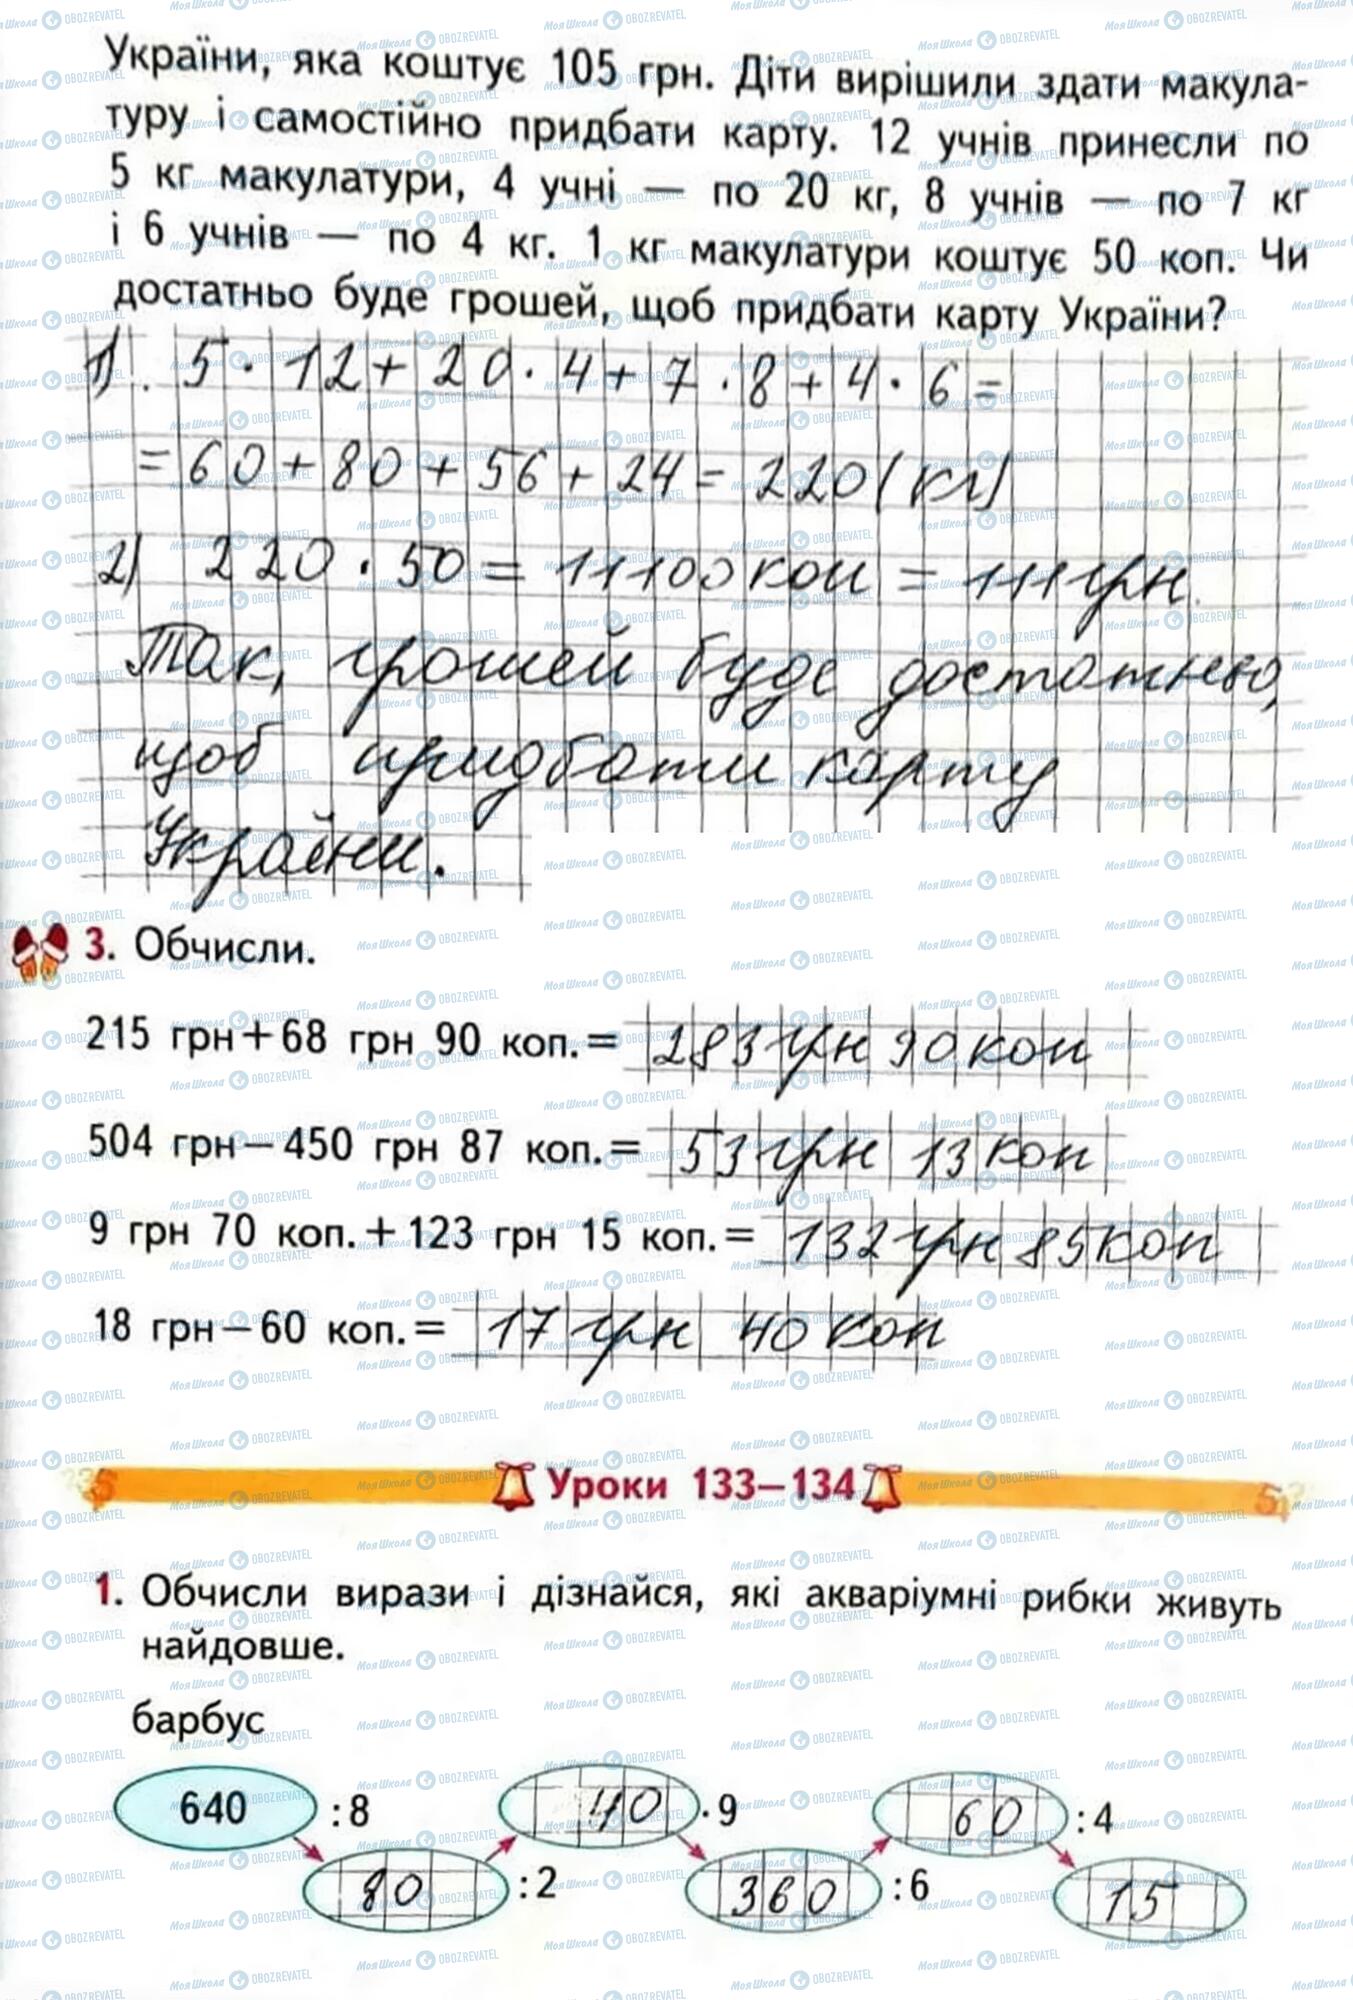 України, яка коштує 105 грн. Діти вирішили здати макула-
туру і самостійно придбати карту. 12 учнів принесли по
5 кг макулатури, 4 учні — по 20 кг, 8 учнів — по 7 кг
і 6 учнів — по 4 кг. 1 кг макулатури коштує 50 коп. Чи
достатньо буде грошей, щоб придбати карту України?
1). 5 · 12 + 20 · 4 + 7 · 8 + 4 · 6 =
= 60 + 80 + 56 + 24 = 220 (кг)
2) 220 · 50 = 11100 коп = 111 грн.
Так, грошей буде достатньо,
щоб придбати карту
України.
3. Обчисли.
215 грн + 68 грн 90 коп. = 283 грн 90 коп
504 грн — 450 грн 87 коп. = 53 грн 13 коп
9 грн 70 коп. + 123 грн 15 коп. = 132 грн 85 коп
18 грн — 60 коп. = 17 грн 40 коп
Уроки 133—134
1. Обчисли вирази і дізнайся, які акваріумні рибки живуть
найдовше.
барбус
640 :8 40 ·9 60 :4
80 :2 360 :6 15
МояШкола OBOZREVATEL